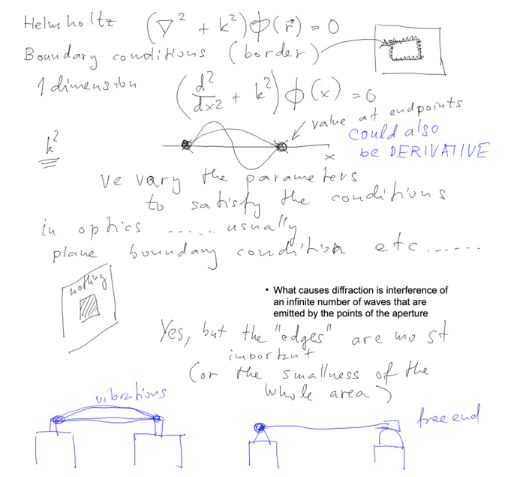 Helmholtz (∇² + k²)ϕ(r⃗) = 0
Boundary conditions (border)
1 dimension (d²/dx² + k²)ϕ(x) = 0
value at endpoints
could also
be DERIVATIVE
k²
x
ve vary the parameters
to satisfy the conditions
in optics ..... usually
plane boundary condition etc......
nothing
• What causes diffraction is interference of
an infinite number of waves that are
emitted by the points of the aperture
Yes, but the "edges" are most
important
(or the smallness of the
whole area)
vibrations
free end